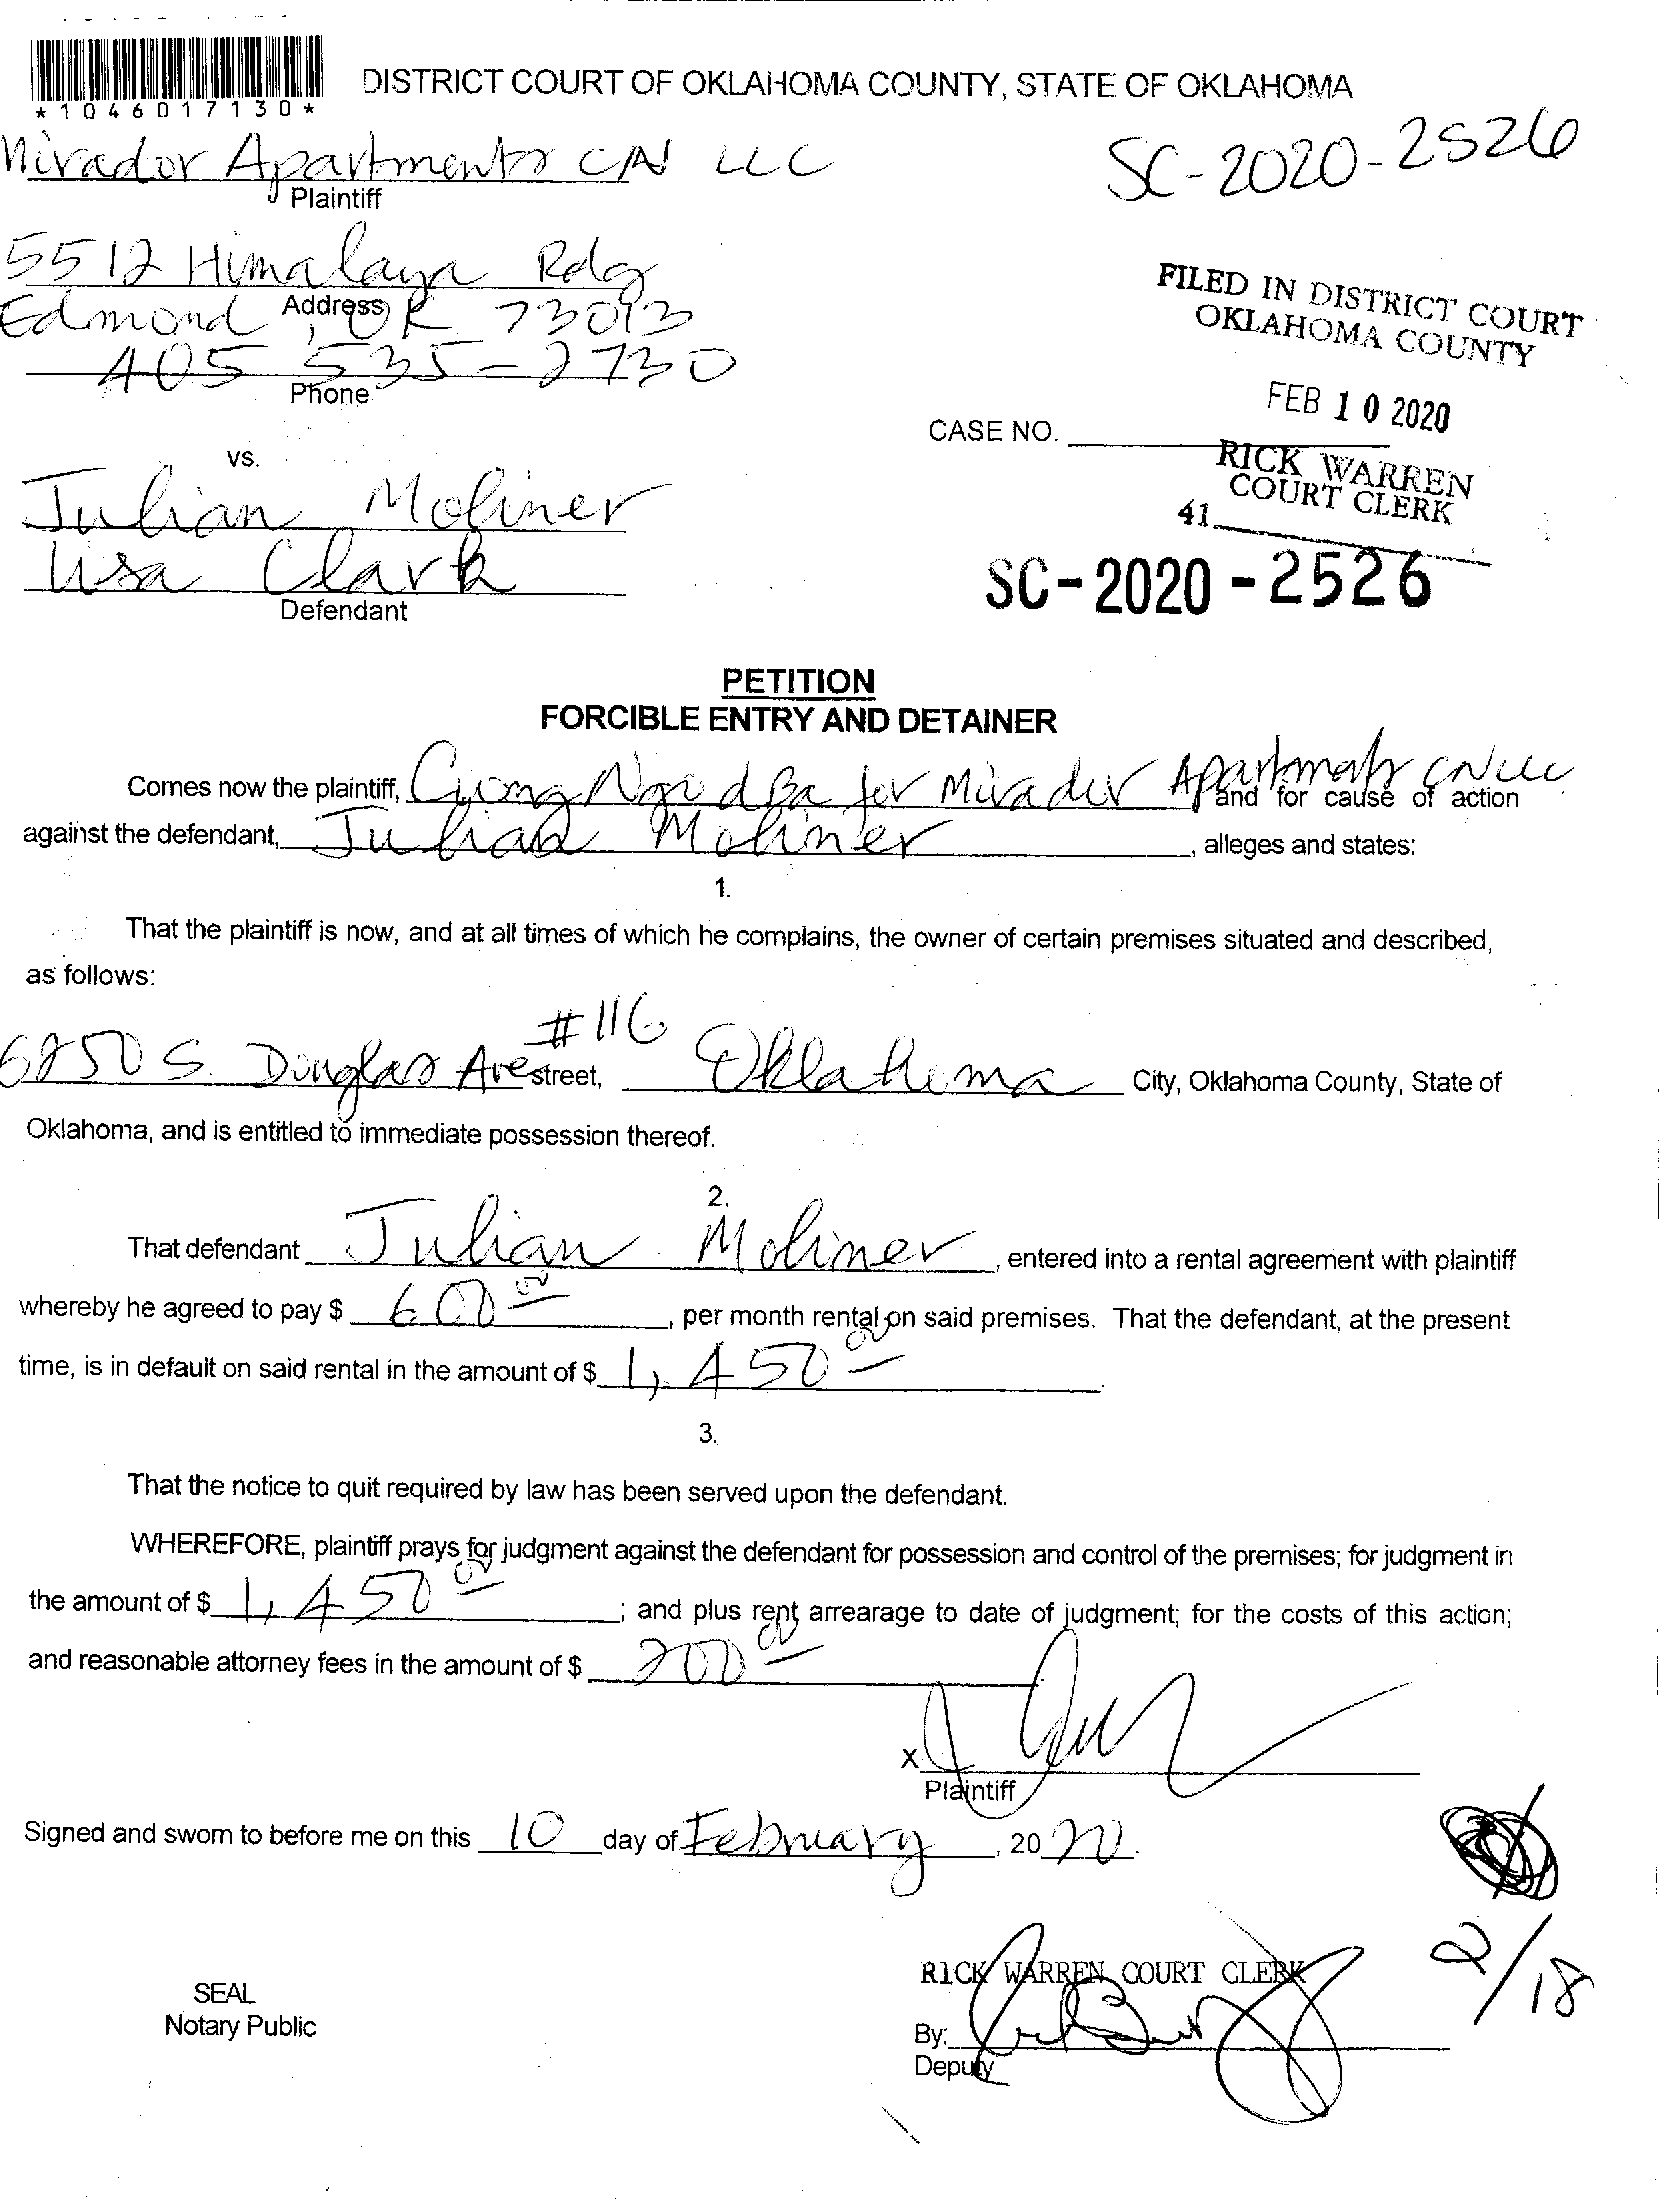 *1046017130*
DISTRICT COURT OF OKLAHOMA COUNTY, STATE OF OKLAHOMA
Mirador Apartments CN LLC
SC-2020-2526
Plaintiff
5512 Himalaya Rdg
Address
Edmond, OK 73013
405 535-2730
Phone
FILED IN DISTRICT COURT
OKLAHOMA COUNTY
FEB 10 2020
CASE NO.
RICK WARREN
COURT CLERK
41
vs.
Julian Moliner
Lisa Clark
Defendant
SC-2020-2526
PETITION
FORCIBLE ENTRY AND DETAINER
Comes now the plaintiff, Cuong Ngo dba for Mirador Apartments CN LLC and for cause of action
against the defendant, Julian Moliner, alleges and states:
1.
That the plaintiff is now, and at all times of which he complains, the owner of certain premises situated and described,
as follows:
#116
6850 S. Douglas Ave street, Oklahoma City, Oklahoma County, State of
Oklahoma, and is entitled to immediate possession thereof.
2.
That defendant Julian Moliner, entered into a rental agreement with plaintiff
whereby he agreed to pay $ 600 00, per month rental on said premises. That the defendant, at the present
time, is in default on said rental in the amount of $ 1,450 00.
3.
That the notice to quit required by law has been served upon the defendant.
WHEREFORE, plaintiff prays for judgment against the defendant for possession and control of the premises; for judgment in
the amount of $ 1,450 00; and plus rent arrearage to date of judgment; for the costs of this action;
and reasonable attorney fees in the amount of $ 200 00
X
Plaintiff
Signed and sworn to before me on this 10 day of February, 2020.
2/18
RICK WARREN COURT CLERK
SEAL
Notary Public
By:
Deputy